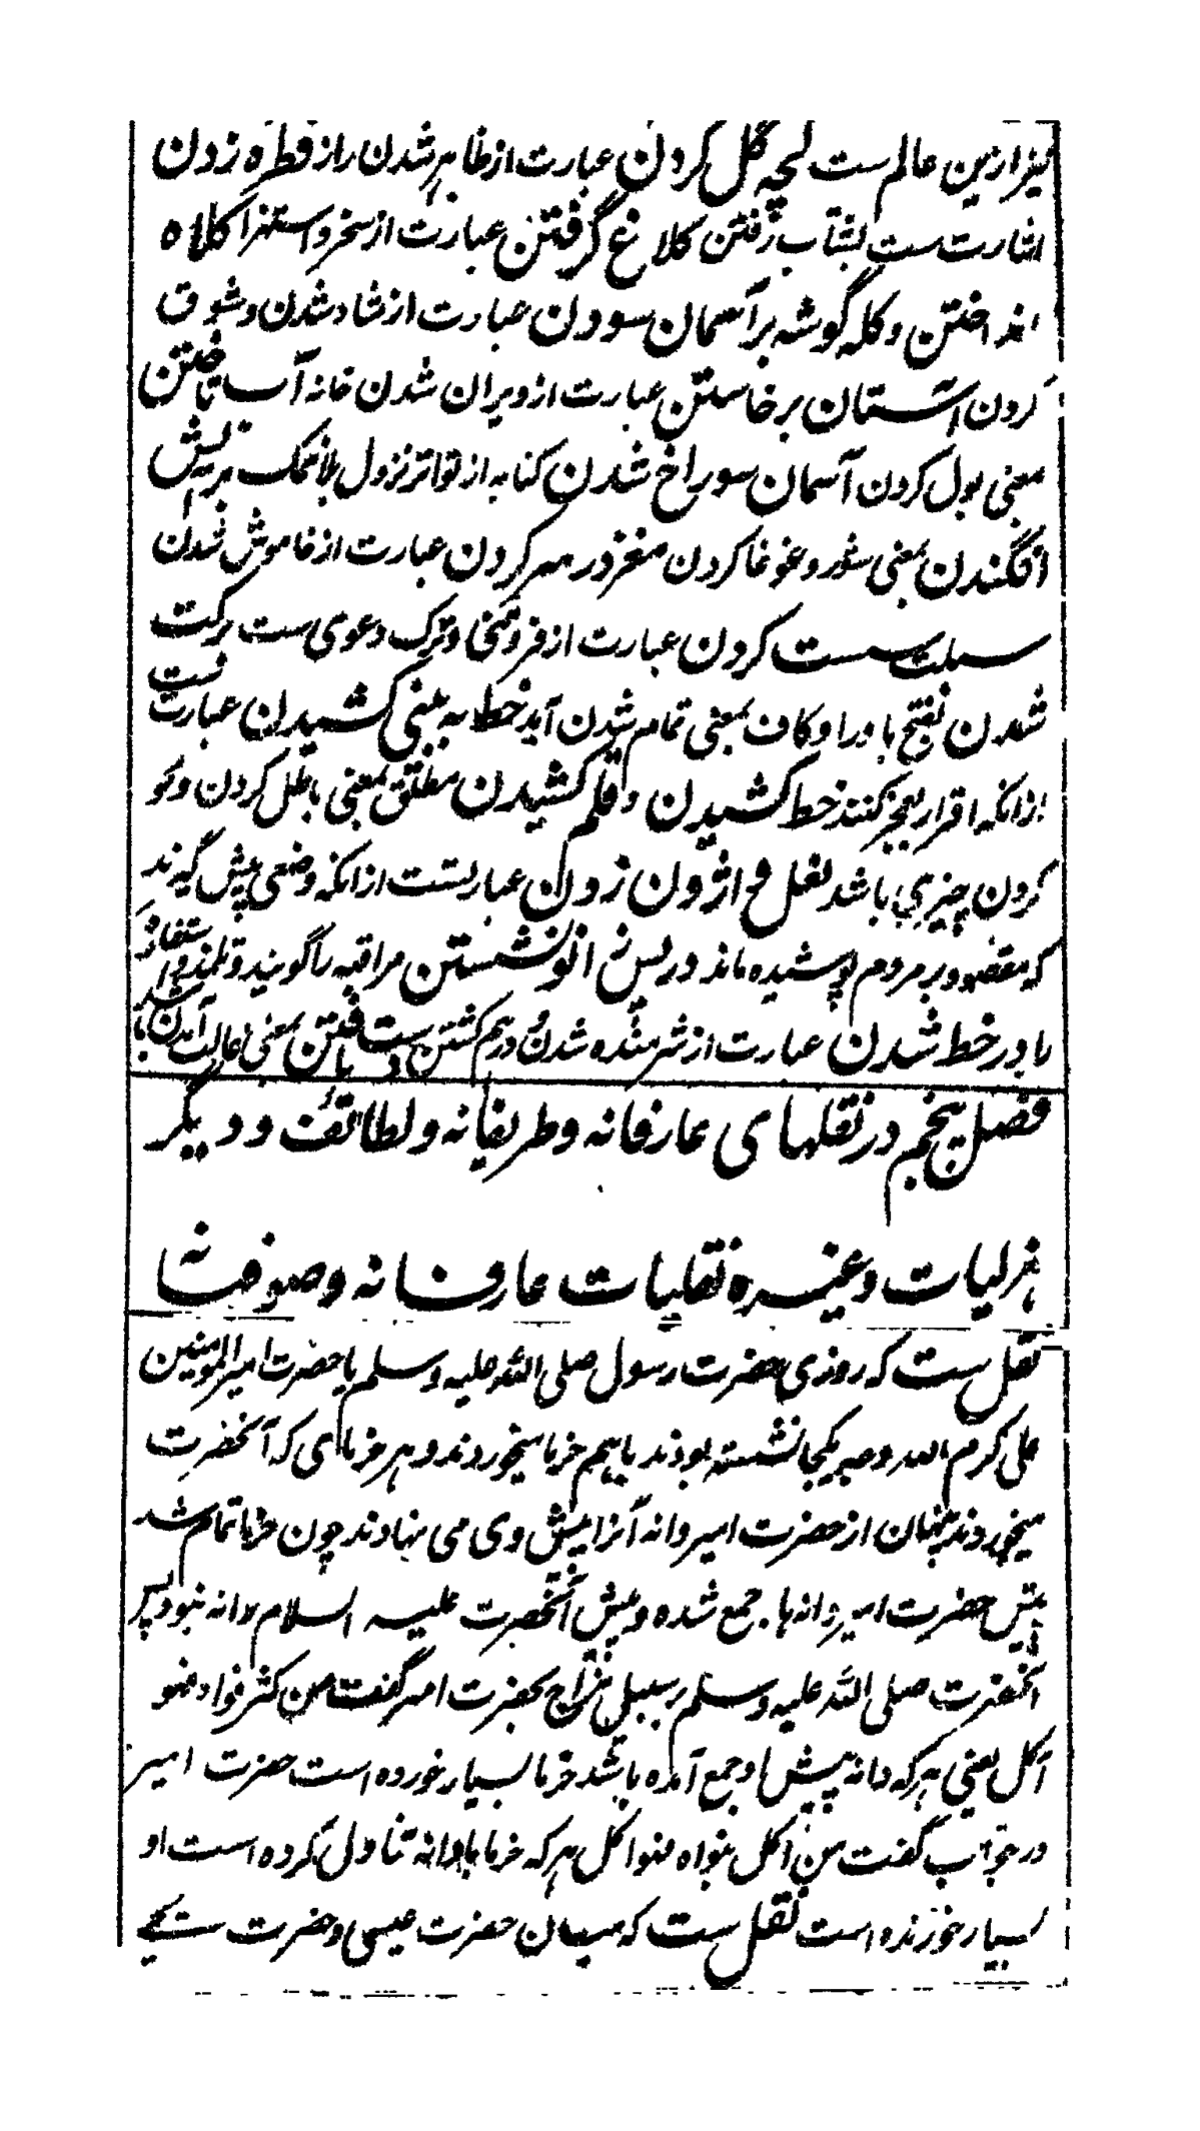 نیز ازین عالم ست لچه گل کردن عبارت از ظاهر شدن راز قطره زدن
اشارت ست بشتاب رفتن کلاغ گرفتن عبارت از سخر و استهزا کلاه
انداختن و کله گوشه بر آسمان سودن عبارت از شاد شدن و شوق
کردن آستان برخاستن عبارت از ویران شدن خانه آب تاختن
معنی بول کردن آسمان سوراخ شدن کنایه از تواتر نزول بلا نمک بر ریش
افگندن بمعنی شور و غوغا کردن مغز در سر کردن عبارت از خاموش شدن
سبلت سست کردن عبارت از فروتنی و ترک دعوی ست برکت
شدن بفتح با و را و کاف بمعنی تمام شدن آید خط به بینی کشیدن عبارت ست
ازانکه اقرار بعجز کنند خط کشیدن و قلم کشیدن مطلق بمعنی باطل کردن و محو
کردن چیزی باشد نعل واژون زدن عبارتست ازانکه وضعی پیش گیرند
که مقصود بر مردم پوشیده ماند در پس زانو نشستن مراقبه را گویند و تلمذ و استفاده
را در خط شدن عبارت از شرمنده شدن و درهم گشتن دست یافتن بمعنی غالب آمدن باشد
فصل پنجم در نقلهای عارفانه و ظریفانه و لطائف و دیگر
هزلیات و غیره نقلیات عارفانه و صوفیانه
نقل ست که روزی حضرت رسول صلی الله علیه وسلم با حضرت امیر المومنین
علی کرم الله وجهه یکجا نشسته بودند باهم خرما میخوردند و هر خرمای که آنحضرت
میخوردند پنهان از حضرت امیر دانه آنرا پیش وی می نهادند چون خرما تمام شد
پیش حضرت امیر دانها جمع شده و پیش آنحضرت علیه السلام دانه نبود پس
آنحضرت صلی الله علیه وسلم بر سبیل مزاح بحضرت امیر گفت من کثر نواه فهو
آکل یعنی هر که دانه پیش او جمع آمده باشد خرما بسیار خورده است حضرت امیر
در جواب گفت من اکل نواه فهو اکل هر که خرما با دانه تناول کرده است او
بسیار خورنده است نقل ست که میان حضرت عیسی و حضرت یحیی